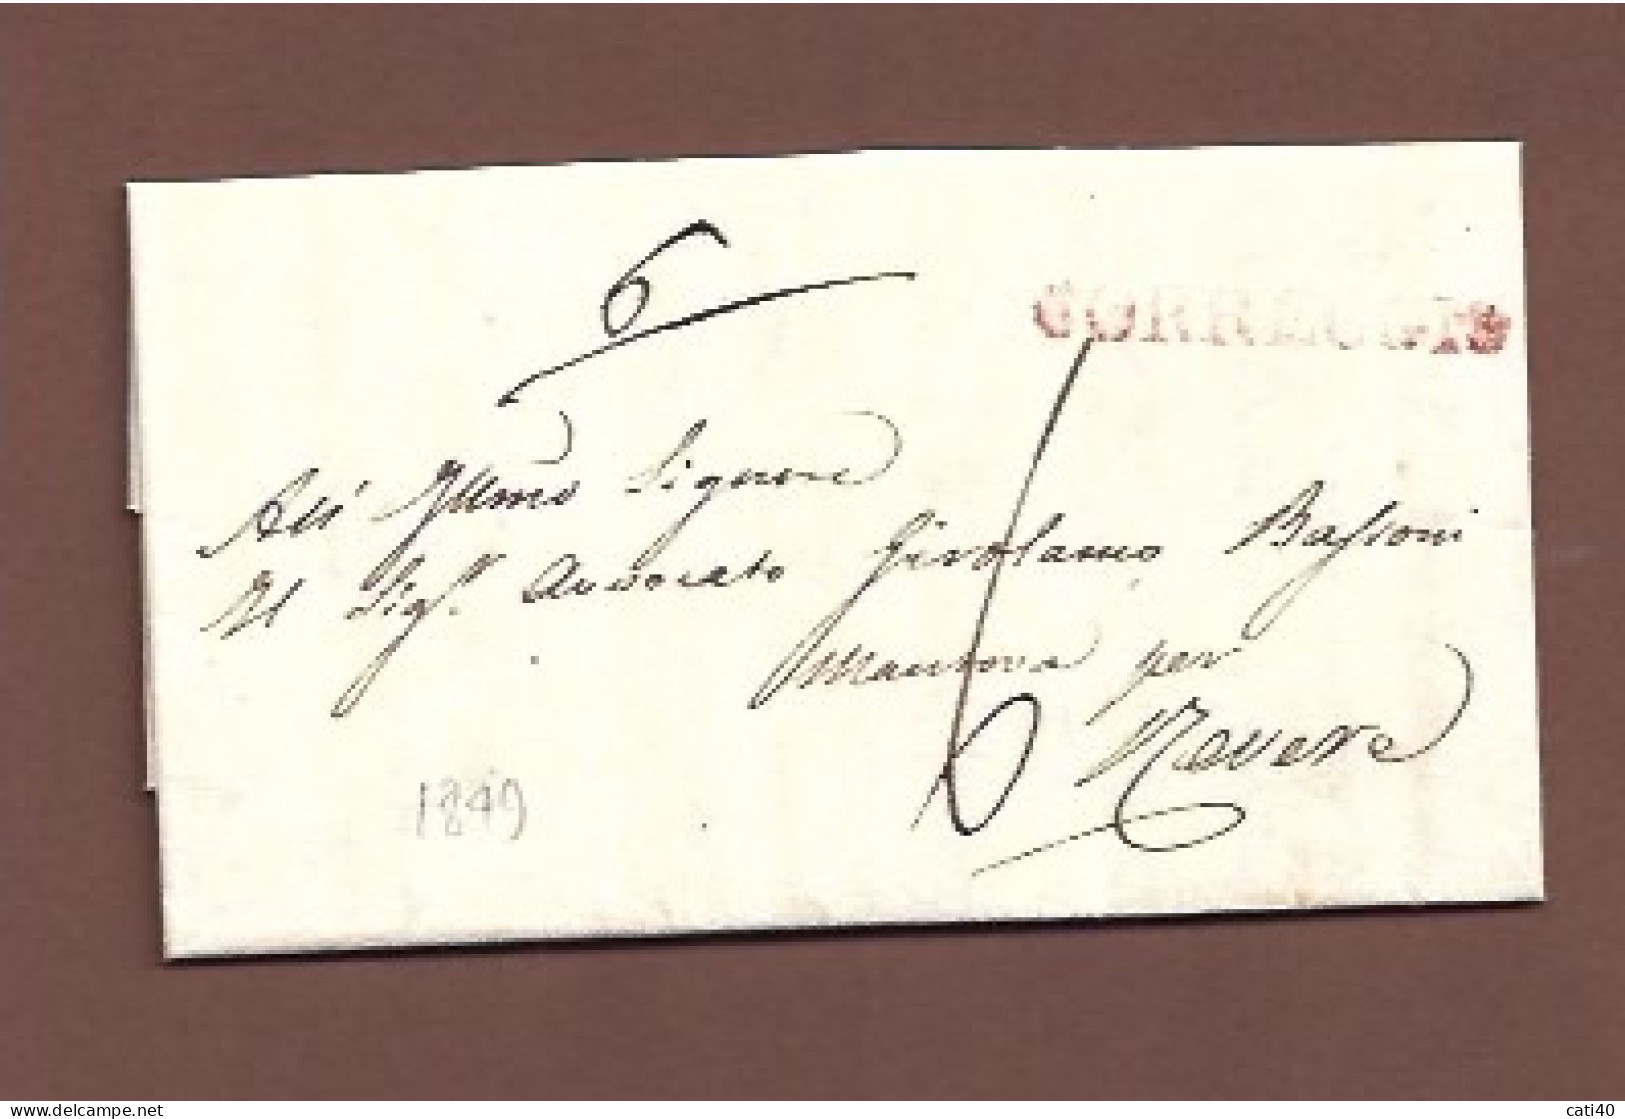 6
CORREGGIO
All' Illmo Signore
Il Sigr. Avvocato Girolamo Bassoni
Mantova per
Revere
6
1849
www.delcampe.net
cati40